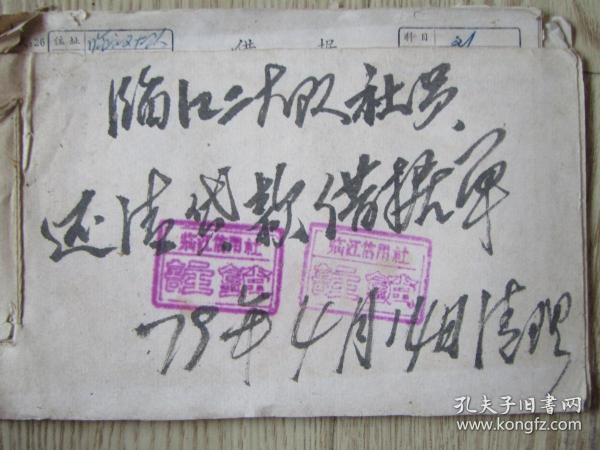 住址
临江二大队
借 据
科目
临江二大队社员
还清贷款借据单
临江信用社
註銷
临江信用社
註銷
79年4月14日清理
孔夫子旧书网
www.kongfz.com